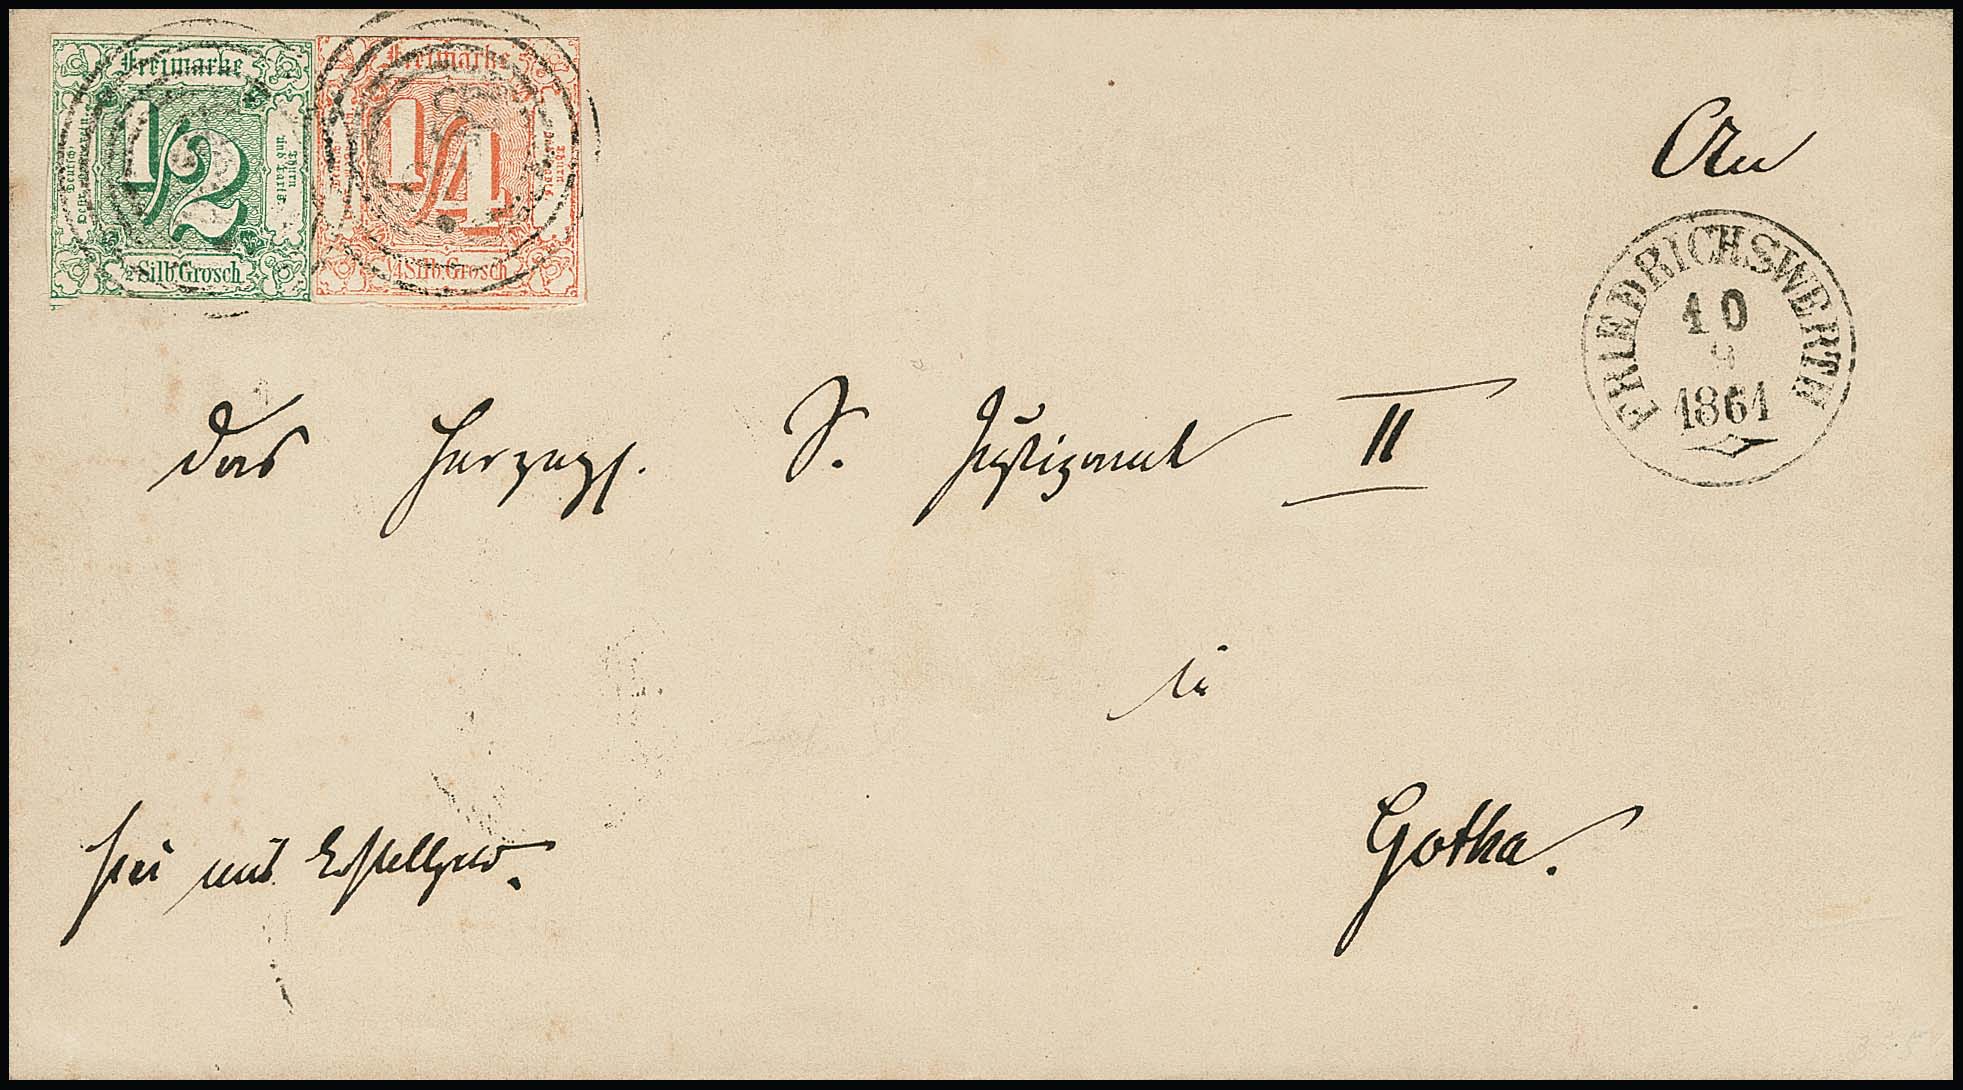 Freimarke
1/2
Thurn und Taxis
1/2 Silb. Grosch.
Freimarke
1/4
1/4 Silb. Grosch.
An
FRIEDRICHSWERTH
10
9
1861
das Herzogl. S. Justizamt II
in
Gotha.
frei mit Bestellgeld.